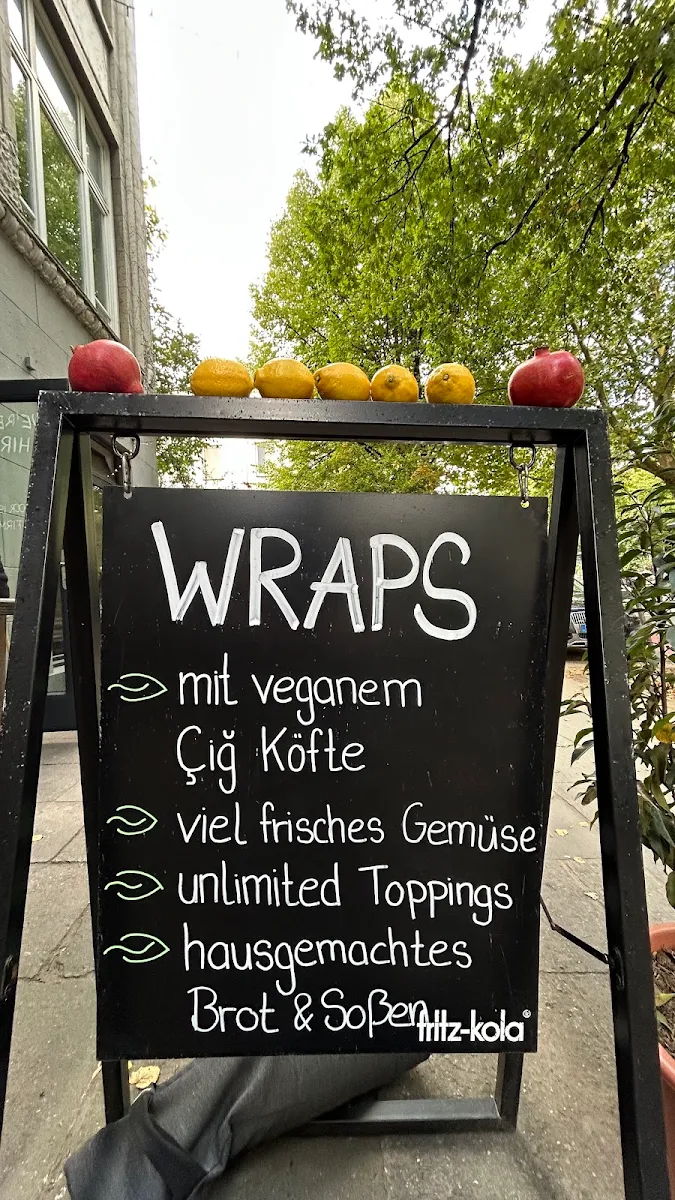 WRAPS
mit veganem
Çiğ Köfte
viel frisches Gemüse
unlimited Toppings
hausgemachtes
Brot & Soßen
fritz-kola®